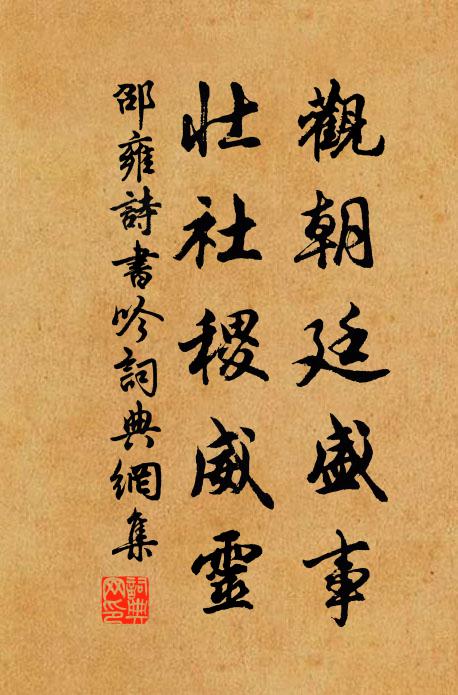 觀朝廷盛事
壯社稷威靈
邵雍詩書吟詞典網集
詞典網印